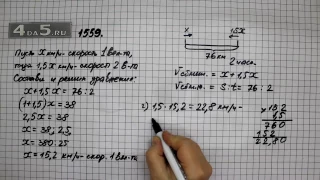 4DA5.RU
1559.
Пусть x км/ч- скорость 1 вел-та,
тогда 1,5x км/ч- скорость 2 в-та
Составим и решим уравнение:
x+1,5x = 76:2
(1+1,5)x = 38
2,5x = 38
x = 38:2,5
x = 380:25
x = 15,2 км/ч- скор. 1 вел-та
x
1,5x
76 км
2 часа.
Vсближ. = x + 1,5x
Vсближ. = S:t = 76:2
2) 1,5 · 15,2 = 22,8 км/ч-
x 15,2
1,5
760
152
22,80